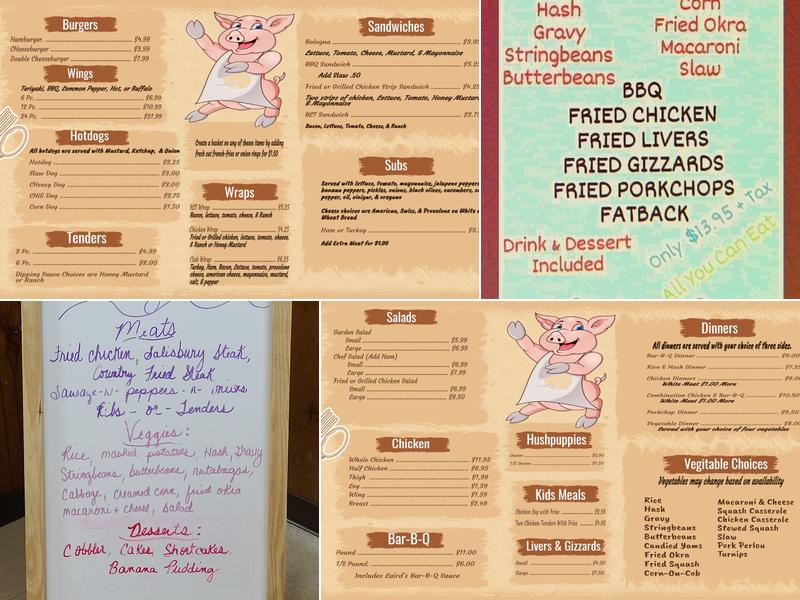 Burgers
Hamburger. $4.99
CHeeseburger $5.99
Double Cheeseburger $7.99
Wings
Teriyaki, BBQ, Lemmon Pepper, Hot, or Buffalo
6 Pc. $6.99
12 Pc. $10.99
24 Pc. $21.99
Hotdogs
All hotdogs are served with Mustard, Ketchup, & Onion
Hotdog $2.25
Slaw Dog $3.00
CHeesy Dog $3.00
CHili Dog $2.75
Corn Dog $1.50
Tenders
3 Pc. $4.99
6 Pc. $8.00
Dipping Sauce Choices are Honey Mustard
or Ranch
Create a basket on any of theses items by adding
fresh cut french-fries or onion rings for $1.50
Wraps
BLT Wrap $5.25
Bacon, lettuce, tomato, cheese, & Ranch
Chicken Wrap $4.25
Fried or Grilled chicken, lettuce, tomato, cheese,
& Ranch or Honey Mustard
Club Wrap $6.25
Turkey, Ham, Bacon, Lettuce, tomato, provolone
cheese, american cheese, mayonnaise, mustard,
salt, & pepper
Sandwiches
Bologna
Lettuce, Tomato, Cheese, Mustard, & Mayonnaise
BBQ Sandwich
Add Slaw .50
Fried or Grilled Chicken Strip Sandwich
Two strips of chicken, Lettuce, Tomato, Honey Mustard
& Mayonnaise
BLT Sandwich
Bacon, Lettuce, Tomato, Cheese, & Ranch
Subs
Served with lettuce, tomato, mayonnaise, jalapeno peppers
banana peppers, pickles, onions, black olives, cucumbers,
pepper, oil, vinigar, & oregano
Cheese choices are American, Swiss, & Provolone on White
Wheat Bread
Ham or Turkey
Add Extra Meat for $1.00
Hash
Gravy
Stringbeans
Butterbeans
Corn
Fried Okra
Macaroni
Slaw
BBQ
FRIED CHICKEN
FRIED LIVERS
FRIED GIZZARDS
FRIED PORKCHOPS
FATBACK
Drink & Dessert
Included
Only $13.95 + Tax
All You Can Eat
Meats
Fried chicken, Salisbury Steak,
Country Fried Steak
Sausage-w- peppers -n- onions
Ribs - or - Tenders
Veggies:
Rice, mashed potatoes, Hash, Gravy
Stringbeans, butterbeans, rutabagas,
Cabbage, creamed corn, fried okra
macaroni + cheese, salad
Desserts:
Cobbler, Cakes, Shortcakes,
Banana Pudding
Salads
Garden Salad
Small $5.99
Large $6.99
Chef Salad (Add Ham)
Small $6.99
Large $7.99
Fried or Grilled Chicken Salad
Small $6.99
Large $8.50
Chicken
Whole Chicken $11.95
Half Chicken $6.95
Thigh $1.99
Leg $1.59
Wing $1.59
Breast $2.49
Bar-B-Q
Pound $11.00
1/2 Pound. $6.00
Includes Laird's Bar-B-Q Sauce
Hushpuppies
Dozen
1/2 Dozen $1.50
Kids Meals
Chicken Leg with Fries $2.95
Two Chicken Tenders With Fries $4.95
Livers & Gizzards
Small $4.50
Large $7.50
Dinners
All dinners are served with your choice of three sides.
Bar-B-Q Dinner $9.00
Rice & Hash Dinner
Chicken Dinners
White Meat $1.00 More
Combination Chicken & Bar-B-Q $10.50
White Meat $1.00 More
Porkchop Dinner $9.50
Vegetable Dinner $8.00
Served with your choice of four vegetables
Vegitable Choices
Vegetables may change based on availability
Rice
Hash
Gravy
Stringbeans
Butterbeans
Candied Yams
Fried Okra
Fried Squash
Corn-On-Cob
Macaroni & Cheese
Squash Casserole
Chicken Casserole
Stewed Squash
Slaw
Pork Perlou
Turnips